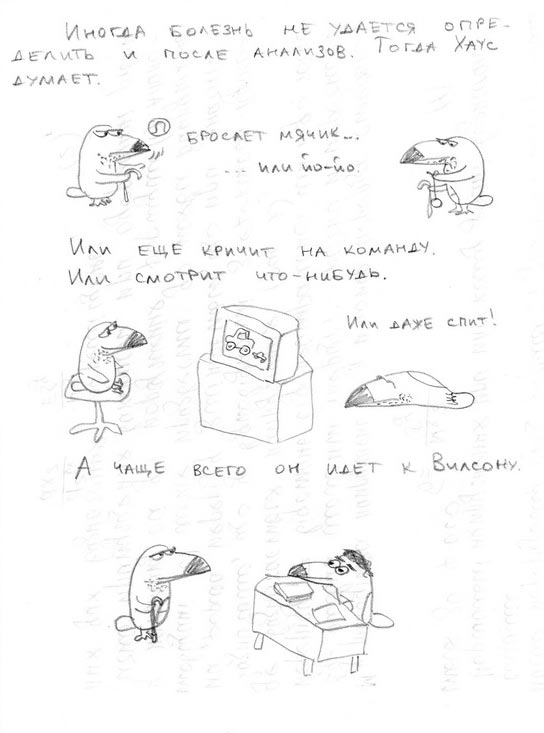 Иногда болезнь не удается опре-
делить и после анализов. Тогда Хаус
думает.
Бросает мячик...
... или йо-йо.
Или еще кричит на команду.
Или смотрит что-нибудь.
Или даже спит!
А чаще всего он идет к Вилсону.